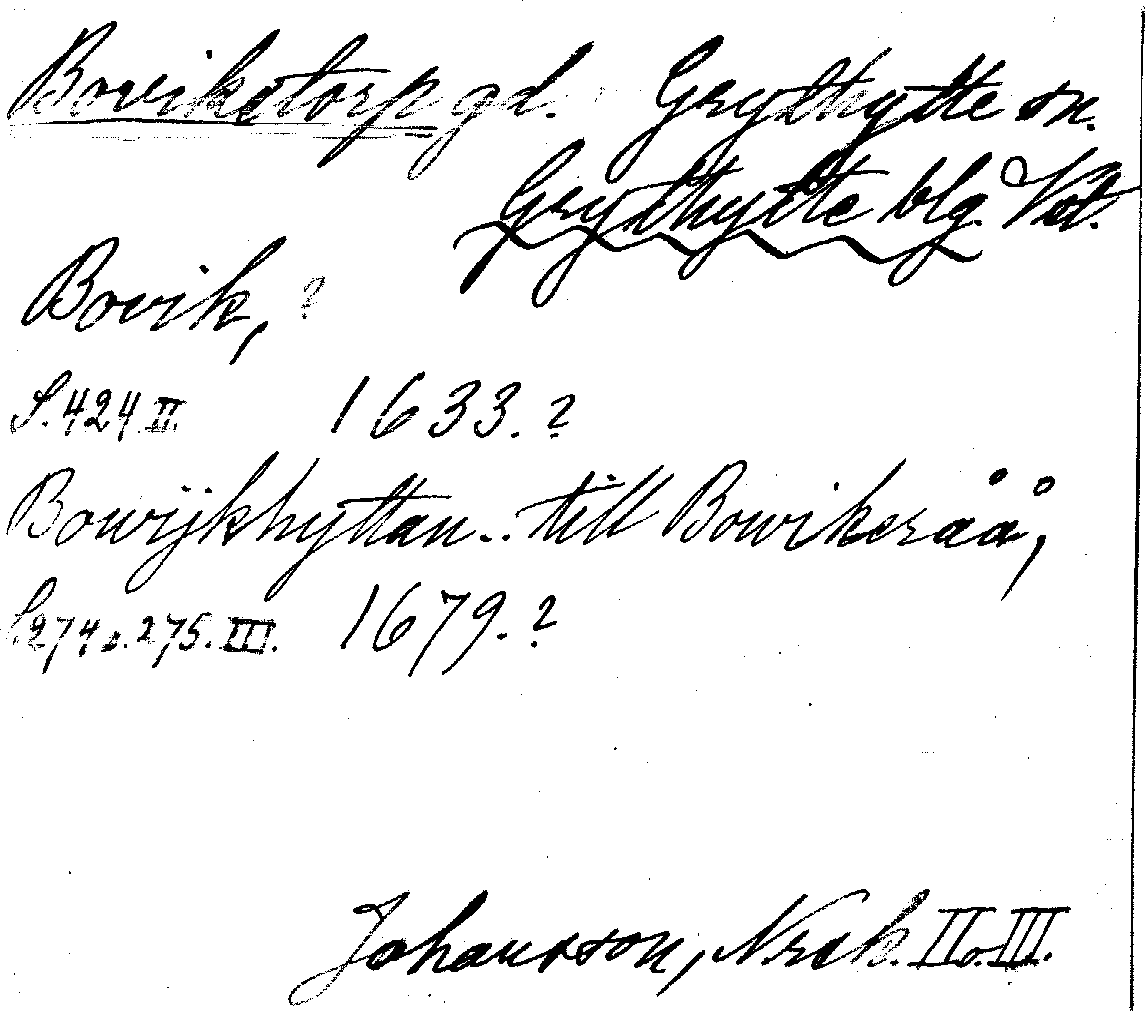 Bovikstorp gd. Grythytte sn.
Grythytte blg. Vstl.
Bovik, ?
S. 424 II. 1633. ?
Bowijkhyttan... till Bowikeråå,
S. 274 o. 275. III. 1679. ?
Johansson, Nrsk. II o. III.